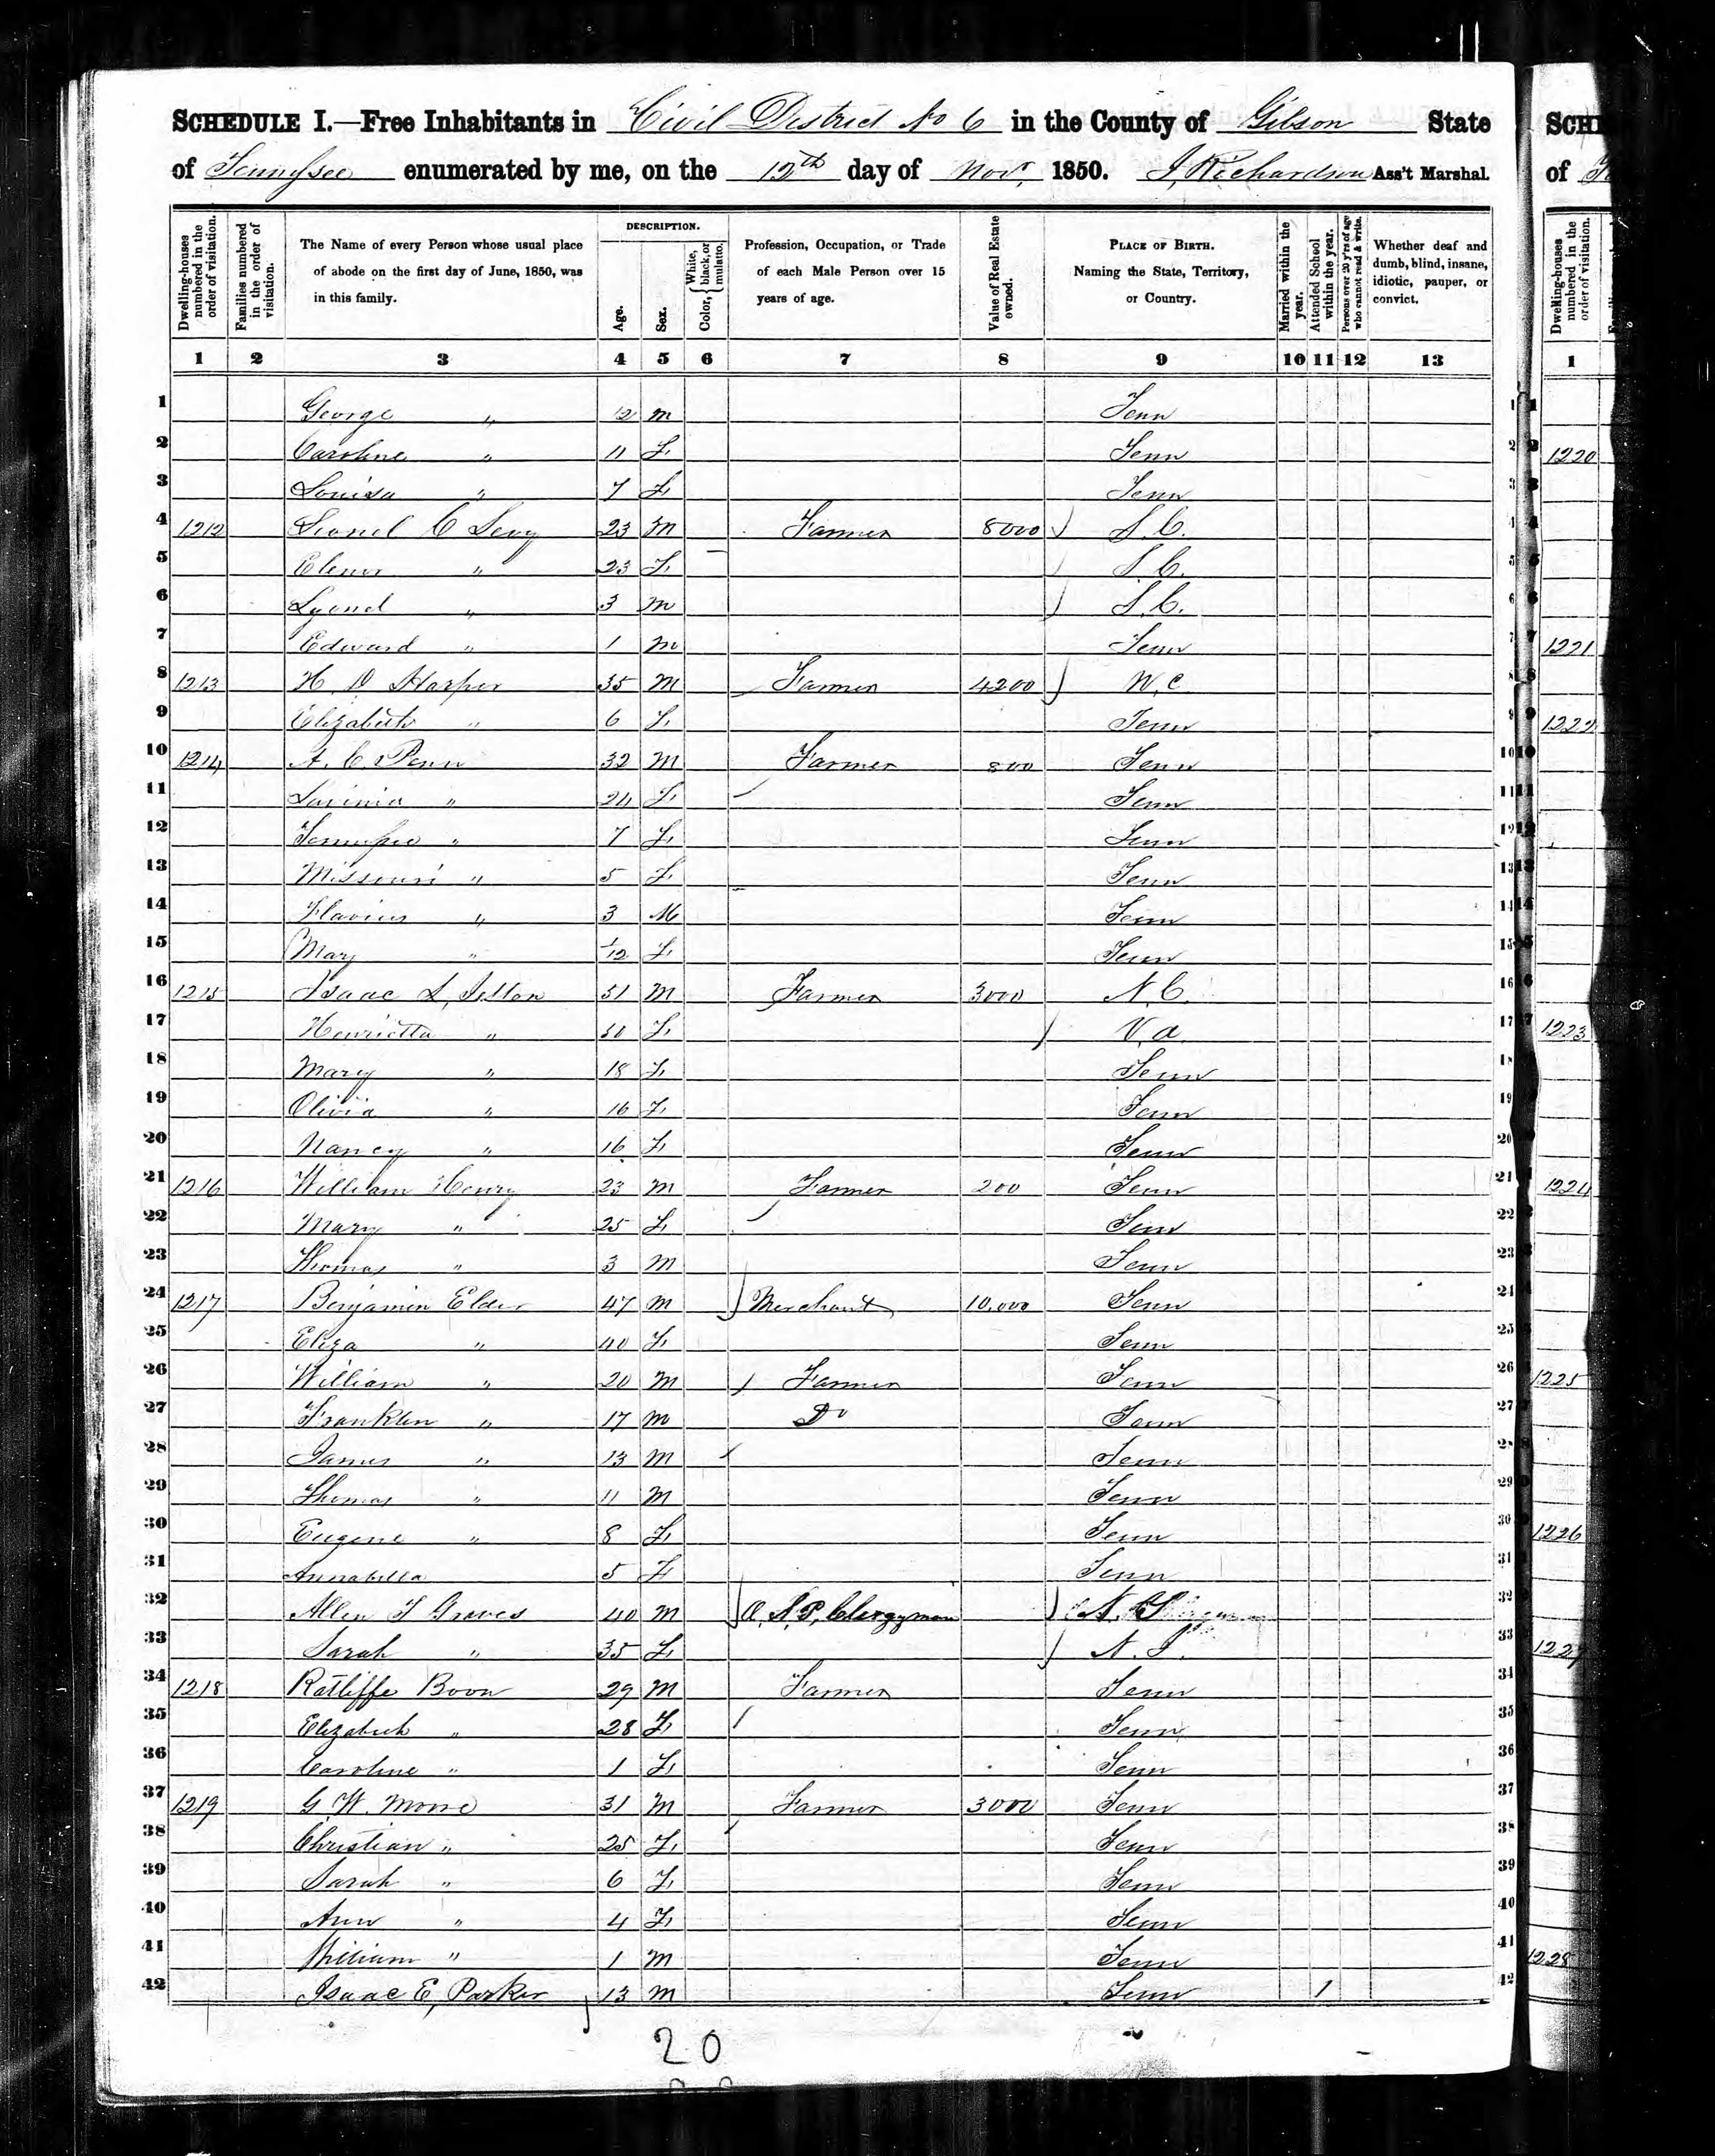 SCHEDULE I.—Free Inhabitants in Civil District No 6 in the County of Gibson State
of Tennessee enumerated by me, on the 12th day of Nov, 1850. J, Richardson Ass't Marshal.
Dwelling-houses numbered in the order of visitation.
Families numbered in the order of visitation.
The Name of every Person whose usual place of abode on the first day of June, 1850, was in this family.
DESCRIPTION.
Age.
Sex.
Color, { White, black, or mulatto.
Profession, Occupation, or Trade of each Male Person over 15 years of age.
Value of Real Estate owned.
PLACE OF BIRTH. Naming the State, Territory, or Country.
Married within the year.
Attended School within the year.
Persons over 20 y'rs of age who cannot read & write.
Whether deaf and dumb, blind, insane, idiotic, pauper, or convict.
1 2 3 4 5 6 7 8 9 10 11 12 13
1 George " 12 M Tenn 1
2 Caroline " 11 F Tenn 2
3 Louisa " 7 F Tenn 3
4 1212 Lionel C Levy 23 M Farmer 8000 S. C. 4
5 Elenor " 23 F S. C. 5
6 Lyonel " 3 M S. C. 6
7 Edward " 1 M Tenn 7
8 1213 H. D Harper 35 M Farmer 4200 N, C 8
9 Elizabeth " 6 F Tenn 9
10 1214 A. C. Penn 32 M Farmer 800 Tenn 10
11 Lavinia " 24 F Tenn 11
12 Tennessee " 7 F Tenn 12
13 Missouri " 5 F Tenn 13
14 Flavius " 3 M Tenn 14
15 Mary " 1/12 F Tenn 15
16 1215 Isaac L, 51 M Farmer 3000 N. C. 16
17 Henrietta " F V. a. 17
18 Mary " 18 F Tenn 18
19 Olivia " 16 F Tenn 19
20 Nancy " 16 F Tenn 20
21 1216 William Henry 23 M Farmer 200 Tenn 21
22 Mary " 25 F Tenn 22
23 Thomas " 3 M Tenn 23
24 1217 Benjamin Elder 47 M Merchant 10,000 Tenn 24
25 Eliza " 40 F Tenn 25
26 William " 20 M Farmer Tenn 26
27 Franklin " 17 M Do Tenn 27
28 James " 13 M Tenn 28
29 Thomas " 11 M Tenn 29
30 Eugene " 8 F Tenn 30
31 Annabella 5 F Tenn 31
32 Allen T Graves 40 M O. S. P, Clergyman N. C 32
33 Sarah " 35 F N. J. 33
34 1218 Ratliffe Boon 29 M Farmer Tenn 34
35 Elizabeth " 28 F Tenn 35
36 Caroline " 1 F Tenn 36
37 1219 G. W. Moore 31 M Farmer 3000 Tenn 37
38 Christian " 25 F Tenn 38
39 Sarah " 6 F Tenn 39
40 Ann " 4 F Tenn 40
41 William " 1 M Tenn 41
42 Isaac E, Parker 13 M Tenn 1 42
20
SCH
of
Dwelling-houses numbered in the order of visitation.
1
1220
1221
1222
1223
1224
1225
1226
1227
1228